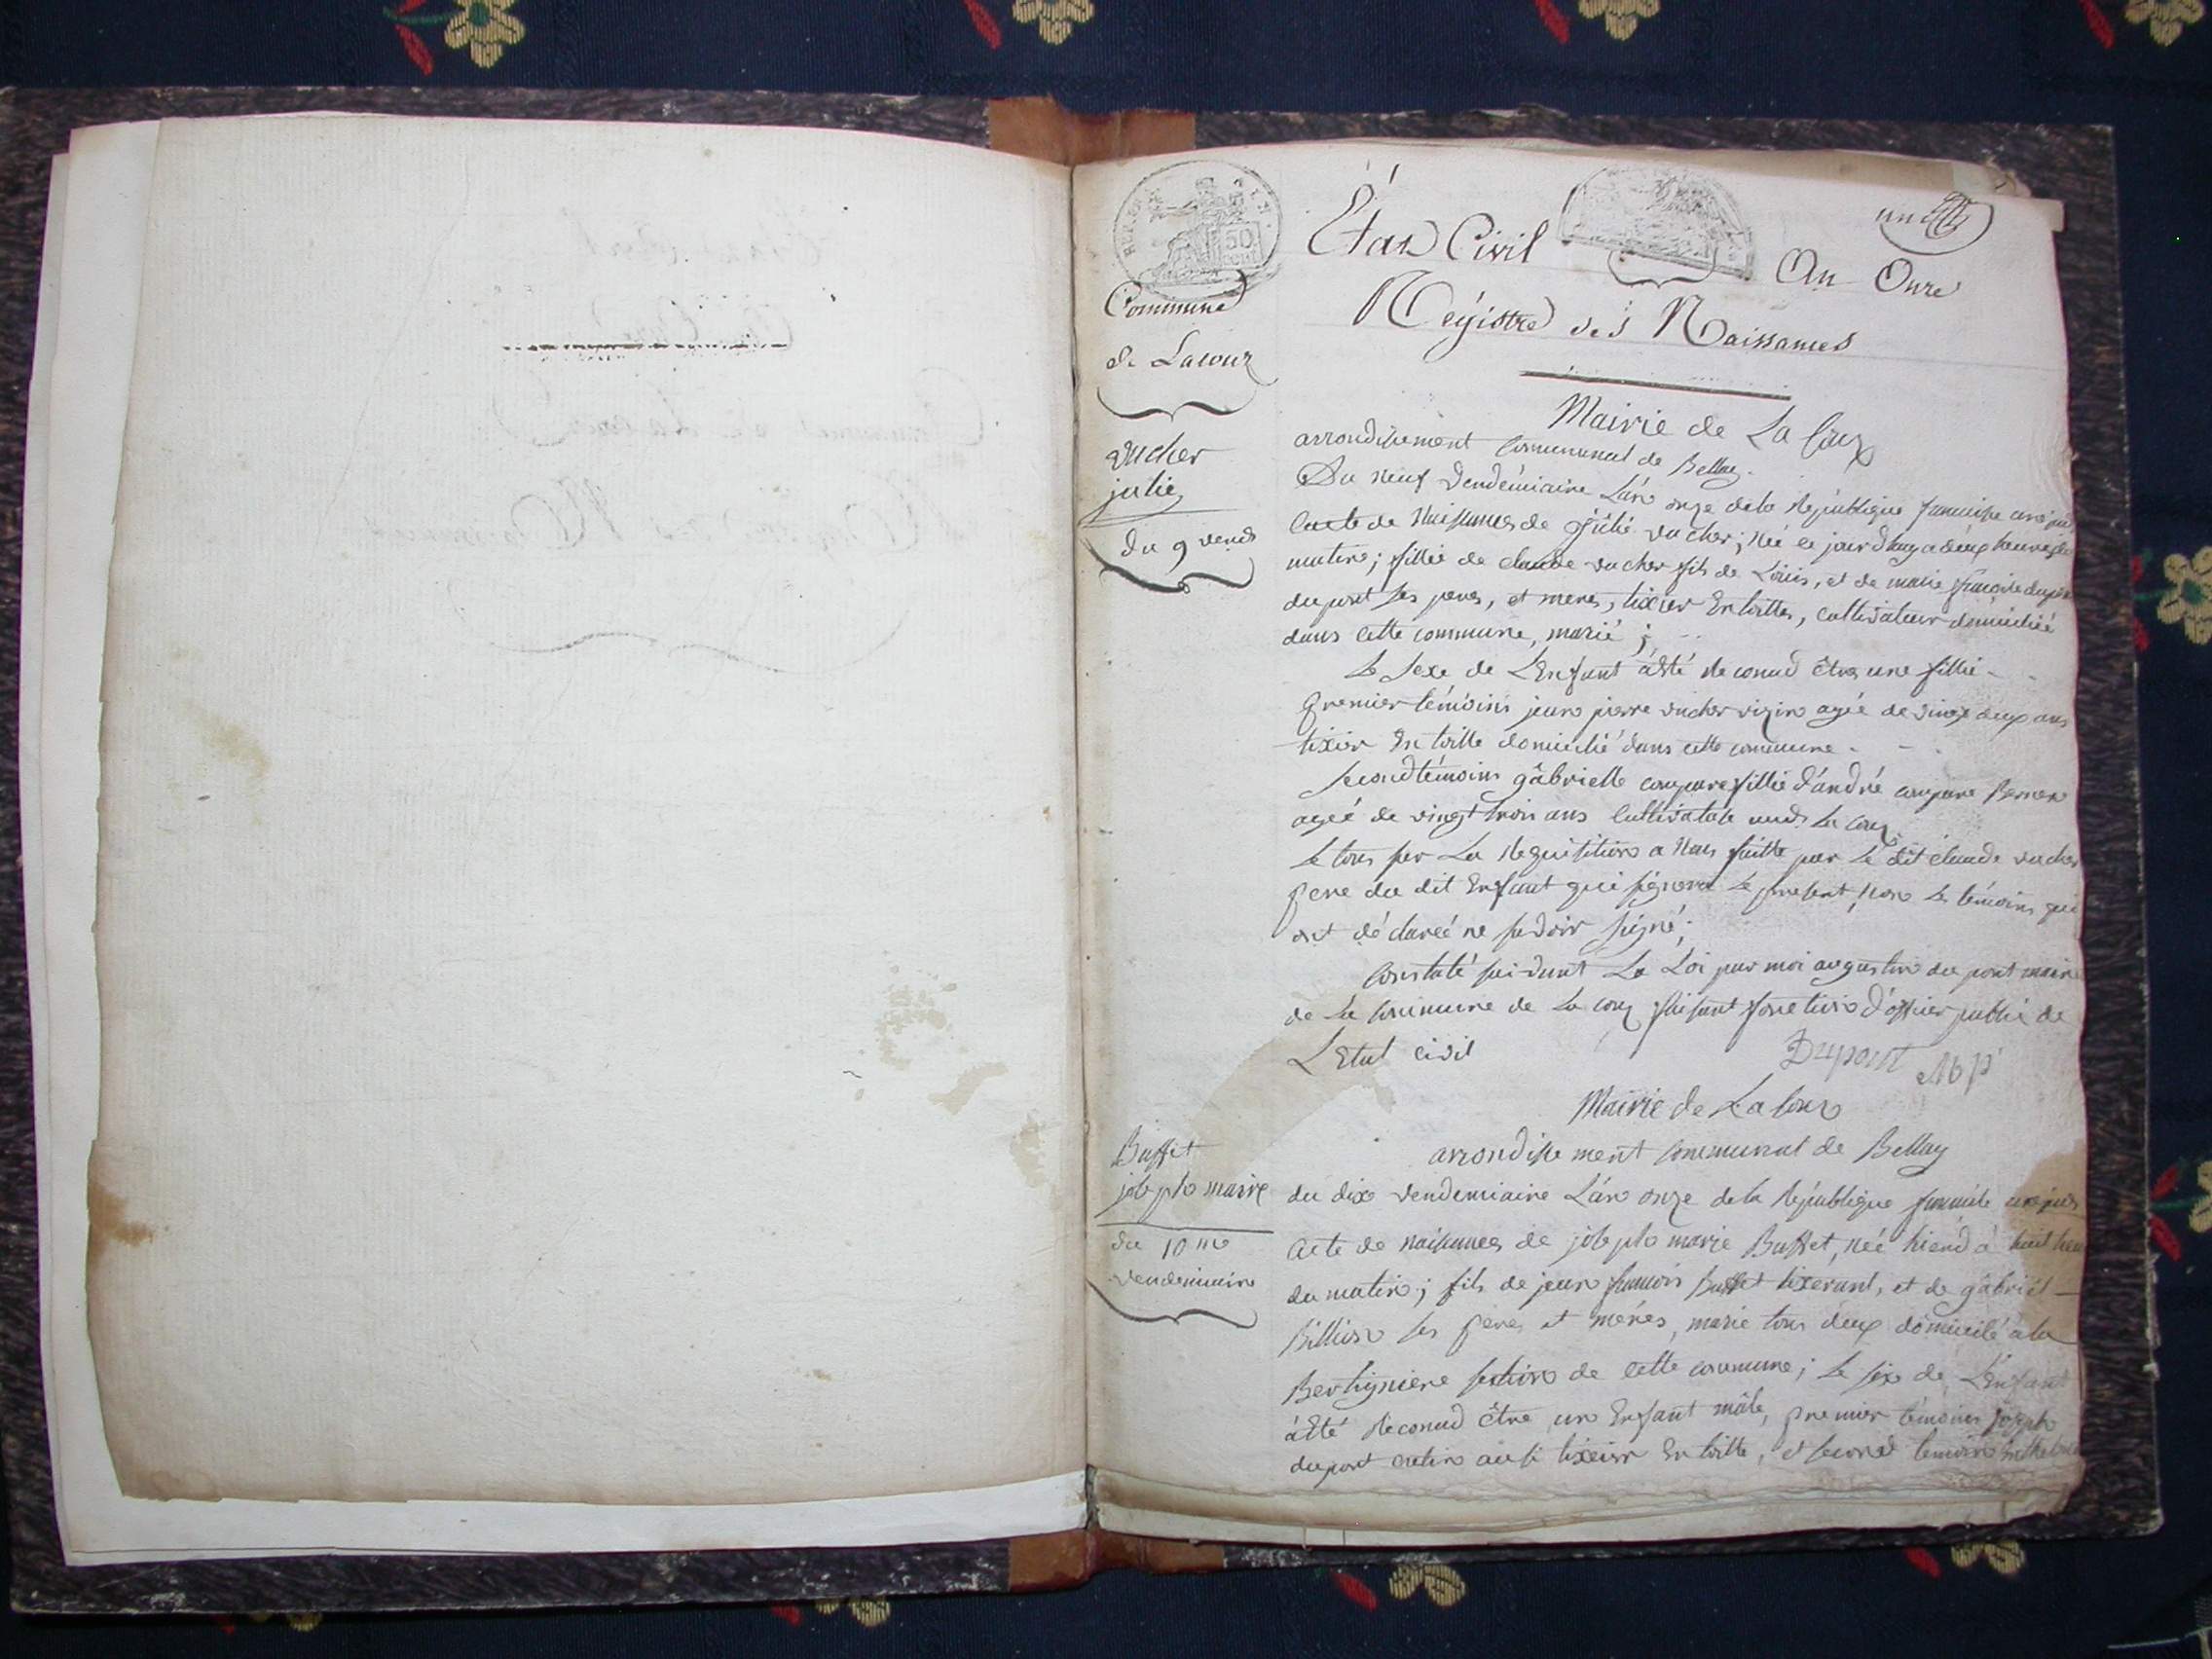 un
État Civil
An Onze
Commune
de Lacoux
Régistre des Naissances
Mairie de La Coux
arrondissement Communal de Bellay.
vucher
julie
du 9 vend
Du neuf vendémiaire L'an onze de la République francaise
l'acte de Naissances de Jülie vucher; Née ce jourdhuy a deux heures du
matin; fillie de claude vucher fils de Loüis, et de marie françoise
dupont ses peres, et meres, tixier En toilles, cultivateur domicilié
dans cette commune, marié;
Le Sexe de L'Enfant àété Reconud être une fillie
premier témoins jean pierre vucher vizin agée de vingt deux ans
tixier En toille domicilié dans cette commune
second témoins gâbrielle compare fillie d'andré compare
agée de vingt trois ans Cultivatote La Coux
Le tous sur La Requisition a Nous faitte par Le dit claude vucher
pere du dit Enfant qui signera Le present, Non Les témoins qui
ont dé clareé ne savoir signé;
Constaté suivant La Loi par moi augustin du pont maire
de La Commune de La Coux faisant fonction d'officier public de
L'Etat civil
Dupont
Mairie de La Coux
arrondisse ment Communal de Bellay
Buffet
joseph marie
du 10me
vendemiaire
du dix vendemiaire L'an onze de la République
Acte de naissances de joseph marie Buffet, née hierd à huit
du matin; fils de jean françois Buffet tixerant, et de gâbriël
Billion ses peres et mérés, marie tous deux domicilé à la
Bertigniere section de cette commune; Le sex de L'Enfant
àété Reconud être un Enfant mâle, premier témoins joseph
dupont aussi tixeier En toille, et second temoin